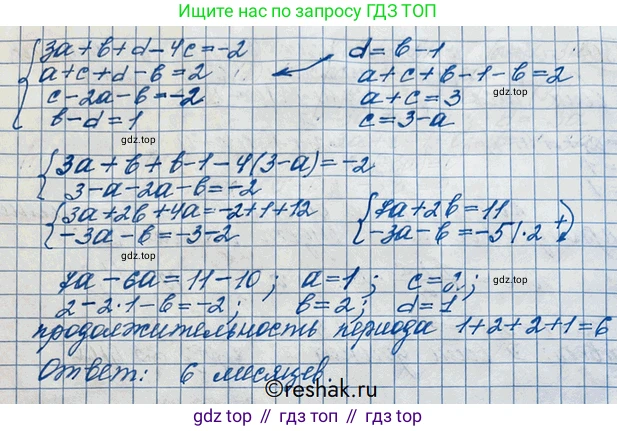 Ищите нас по запросу ГДЗ ТОП
3a+b+d-4c=-2
a+c+d-b=2
c-2a-b=-2
b-d=1
d=b-1
a+c+b-1-b=2
a+c=3
c=3-a
gdz.top
gdz.top
gdz.top
3a+b+b-1-4(3-a)=-2
3-a-2a-b=-2
gdz.top
gdz.top
3a+2b+4a=-2+1+12
-3a-b=-3-2
7a+2b=11
-3a-b=-5|·2 +)
gdz.top
gdz.top
7a-6a=11-10; a=1; c=2;
2-2·1-b=-2; b=2; d=1
продолжительность периода 1+2+2+1=6
gdz.top
gdz.top
Ответ: 6 месяцев
©reshak.ru
gdz.top // гдз.топ // gdz.top